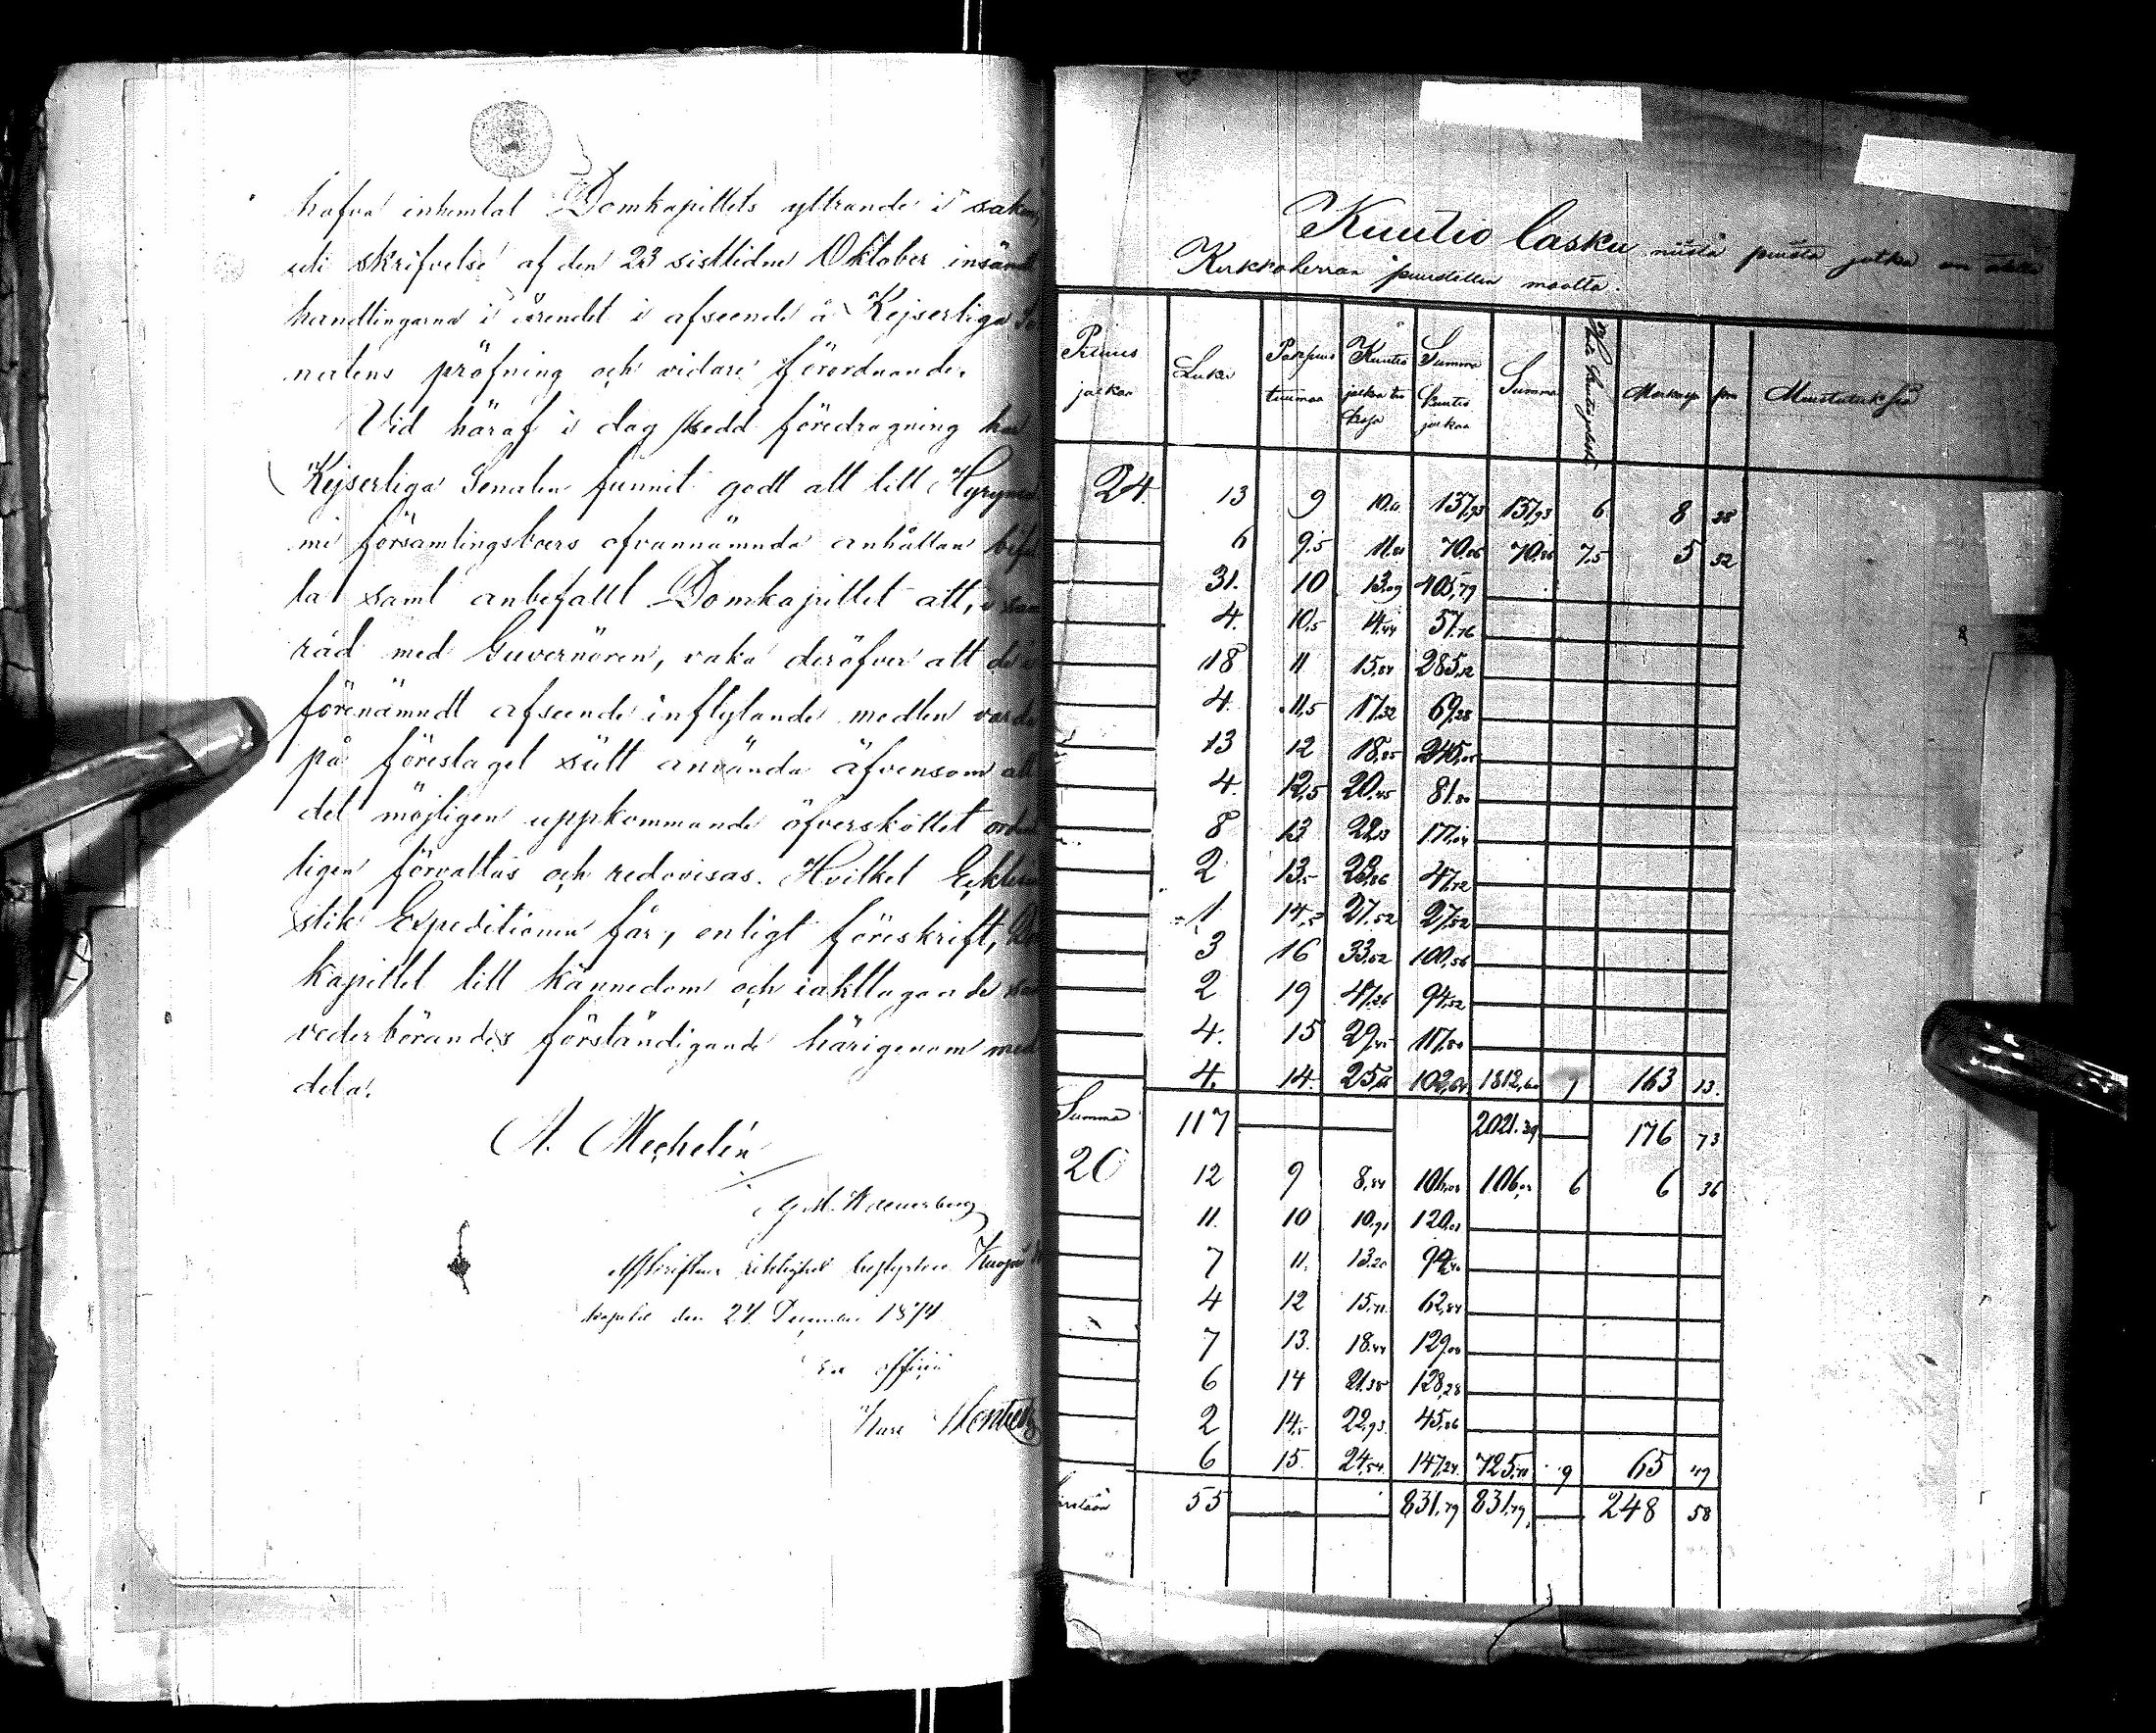 hafva inhemtat Domkapitlets yttrande i saken,
uti skrifvelse af den 23 sistlidne Oktober insändt
handlingarna i ärendet i afseende å Kejserliga Se
natens pröfning och vidare förordnande.
Vid häraf i dag skedd föredragning har
Kejserliga Senaten funnit godt att till Hyrynsal
mi församlingsboers ofvannämnda anhållan bifal
la samt anbefallt Domkapitlet att, i sam
råd med Guvernören, vaka deröfver att de i
förenämndt afseende inflytande medlen varda
på föreslaget sätt använda äfvensom att
det möjligen uppkommande öfverskottet ordent
ligen förvaltas och redovisas. Hvilket Ecklesia
stik Expeditionen får, enligt föreskrift, Dom
kapitlet till kännedom och iakttagande samt
vederbörandes förständigande härigenom med
dela.
A. Mechelin
Afskriftens riktighet bestyrker Kuopio
den 24 December 1874
Ex officio
Kuutio lasku niistä puista jotka on
Kirkkoherran puustellin maalta.
Pituus jalkaa Luku Paksuus tuumaa Kuutio jalkaa Summa kuutio jalkaa Summa Markkaa pn Muistutuksia
24. 13 9 137,93 137,93 6 8 28
6 9.5 11.81 70.86 70.86 7,5 5 32
31. 10 13.09 405,79
4. 10,5 14,44 57,76
18 11 15,84 285,12
4. 11,5 17,32 69,28
13 12 18,85 245,05
4. 12,5 20,45 81.80
8 13 22,13 177,04
2 13,5 23,86 47,72
1 14,5 27,52 27,52
3 16 33,52 100,56
2 19 47,26 94,52
4. 15 29,45 117,80
4. 14 102,64 1812,60 163 13.
Summa 117 2021.39 176 73
20 12 9 8,84 106,08 106,08 6 6 36
11. 10 10,91 120,01
7 11. 13.20 92,40
4 12 15,71 62,84
7 13. 18.44 129,08
6 14 21.38 128,28
2 14,5 22,93 45,86
6 15. 24,54 147,24 725,71 9 65
55 831,79 831,79 248 58